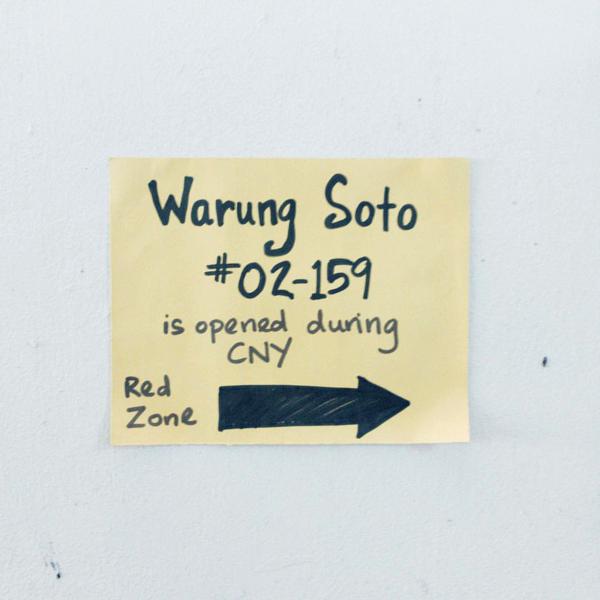 Warung Soto
#02-159
is opened during
CNY
Red
Zone